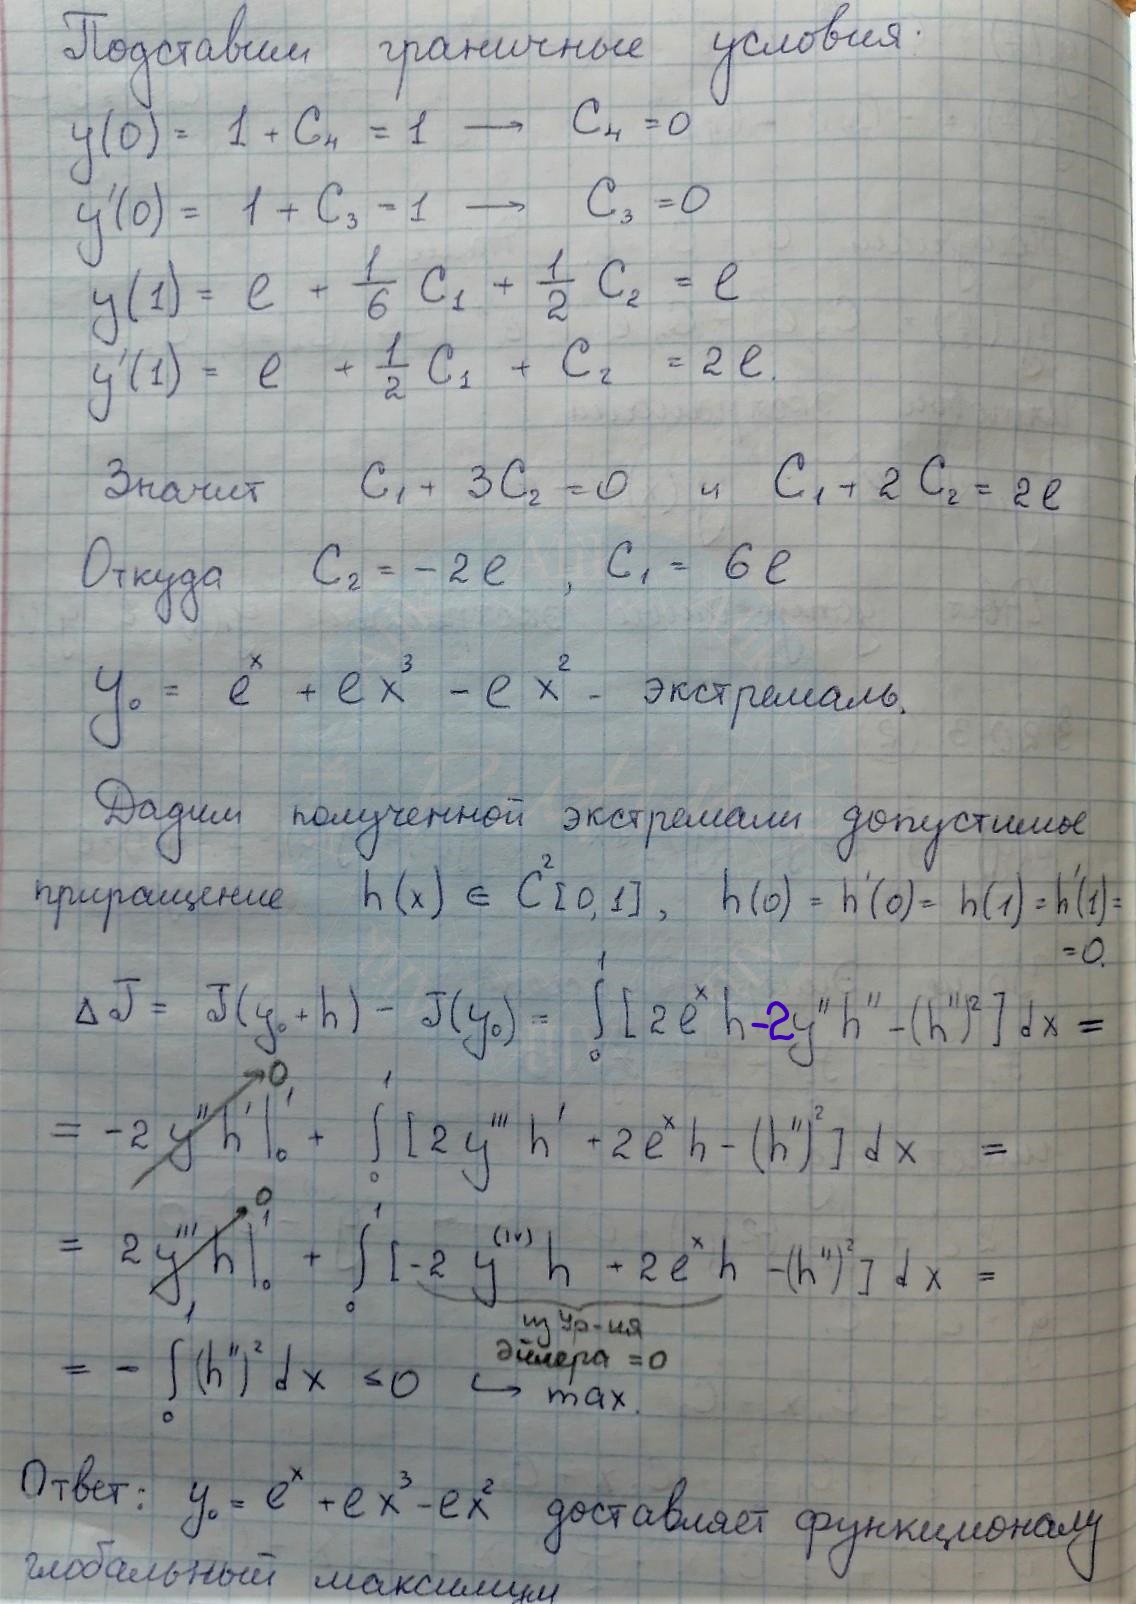 Подставим граничные условия:
y(0) = 1 + C₄ = 1 → C₄ = 0
y'(0) = 1 + C₃ = 1 → C₃ = 0
y(1) = e + 1/6 C₁ + 1/2 C₂ = e
y'(1) = e + 1/2 C₁ + C₂ = 2e.
Значит C₁ + 3C₂ = 0 и C₁ + 2C₂ = 2e
Откуда C₂ = -2e, C₁ = 6e
y₀ = eˣ + ex³ - ex² - экстремаль.
Дадим полученной экстремали допустимое
приращение h(x) ∈ C²[0,1], h(0) = h'(0) = h(1) = h'(1) =
= 0.
ΔJ = J(y₀ + h) - J(y₀) = ∫₀¹ [2eˣh - 2y''h'' - (h'')²] dx =
= -2y''h'|₀¹ → 0 + ∫₀¹ [2y'''h' + 2eˣh - (h'')²] dx =
= 2y'''h|₀¹ → 0 + ∫₀¹ [-2y⁽ⁱᵛ⁾h + 2eˣh - (h'')²] dx =
из Ур-ия
Эйлера = 0
= - ∫₀¹ (h'')² dx ≤ 0 ↪ max.
Ответ: y₀ = eˣ + ex³ - ex² доставляет функционалу
глобальный максимум